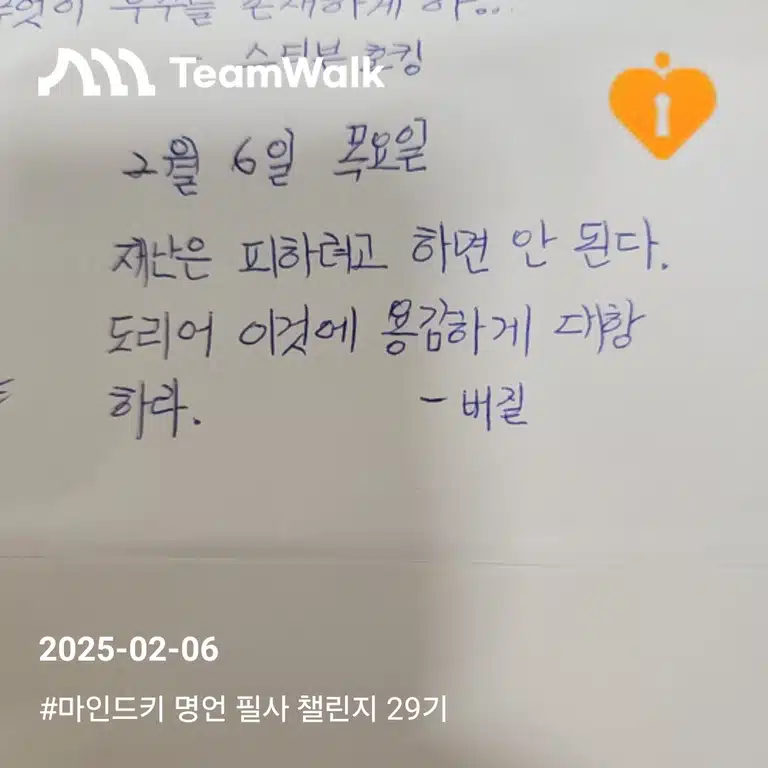 우주를 존재하게 하...
- 스티븐 호킹
TeamWalk
2월 6일 목요일
재난은 피하려고 하면 안 된다.
도리어 이것에 용감하게 대항
하라. - 버질
2025-02-06
#마인드키 명언 필사 챌린지 29기